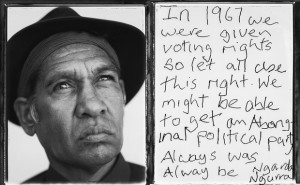 In 1967 we
were given
voting rights
so let all use
this right. We
might be able
to get an Aborig
inal political party
Always was
Alway be Ngarda
Ngurra